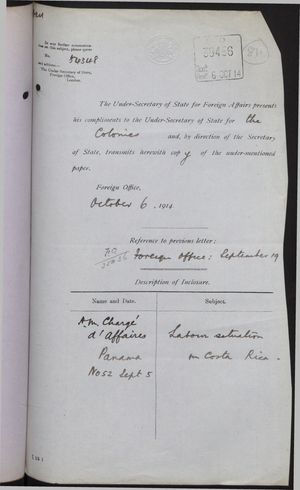 In any further communication
on this subject, please quote
No. 56348
and address—
The Under-Secretary of State,
Foreign Office,
London.
39456
Recd 6 OCT 14
The Under-Secretary of State for Foreign Affairs presents
his compliments to the Under-Secretary of State for the
Colonies and, by direction of the Secretary
of State, transmits herewith copy of the under-mentioned
paper.
Foreign Office,
October 6, 1914
Reference to previous letter:
Foreign Office: September 19
Description of Inclosure.
Name and Date. Subject.
Chargé
d'Affaires Labour situation
Panama in Costa Rica.
No 52 Sept 5